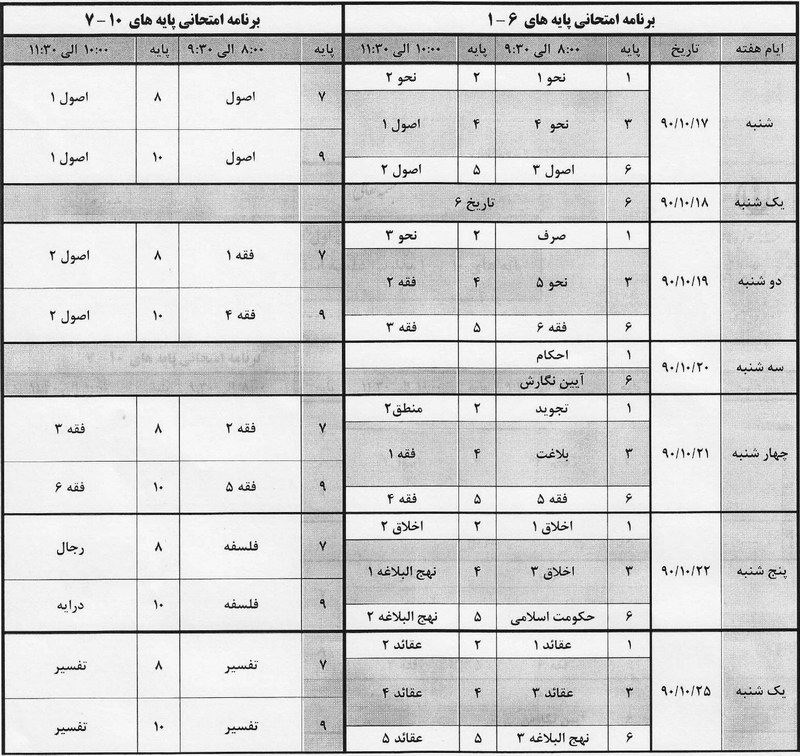 برنامه امتحانی پایه های ۶ – ۱ برنامه امتحانی پایه های ۱۰ – ۷
ایام هفته تاریخ پایه ۸:۰۰ الی ۹:۳۰ پایه ۱۰:۰۰ الی ۱۱:۳۰ پایه ۸:۰۰ الی ۹:۳۰ پایه ۱۰:۰۰ الی ۱۱:۳۰
شنبه ۹۰/۱۰/۱۷
۱ نحو ۱ ۲ نحو ۲
۳ نحو ۴ ۴ اصول ۱
۶ اصول ۳ ۵ اصول ۲
۷ اصول ۸ اصول ۱
۹ اصول ۱۰ اصول ۱
یک شنبه ۹۰/۱۰/۱۸ ۶ تاریخ ۶
دو شنبه ۹۰/۱۰/۱۹
۱ صرف ۲ نحو ۳
۳ نحو ۵ ۴ فقه ۲
۶ فقه ۶ ۵ فقه ۳
۷ فقه ۱ ۸ اصول ۲
۹ فقه ۴ ۱۰ اصول ۲
سه شنبه ۹۰/۱۰/۲۰
۱ احکام
۶ آیین نگارش
چهار شنبه ۹۰/۱۰/۲۱
۱ تجوید ۲ منطق۲
۳ بلاغت ۴ فقه ۱
۶ فقه ۵ ۵ فقه ۴
۷ فقه ۲ ۸ فقه ۳
۹ فقه ۵ ۱۰ فقه ۶
پنج شنبه ۹۰/۱۰/۲۲
۱ اخلاق ۱ ۲ اخلاق ۲
۳ اخلاق ۳ ۴ نهج البلاغه ۱
۶ حکومت اسلامی ۵ نهج البلاغه ۲
۷ فلسفه ۸ رجال
۹ فلسفه ۱۰ درایه
یک شنبه ۹۰/۱۰/۲۵
۱ عقائد ۱ ۲ عقائد ۲
۳ عقائد ۳ ۴ عقائد ۴
۶ نهج البلاغه ۳ ۵ عقائد ۵
۷ تفسیر ۸ تفسیر
۹ تفسیر ۱۰ تفسیر